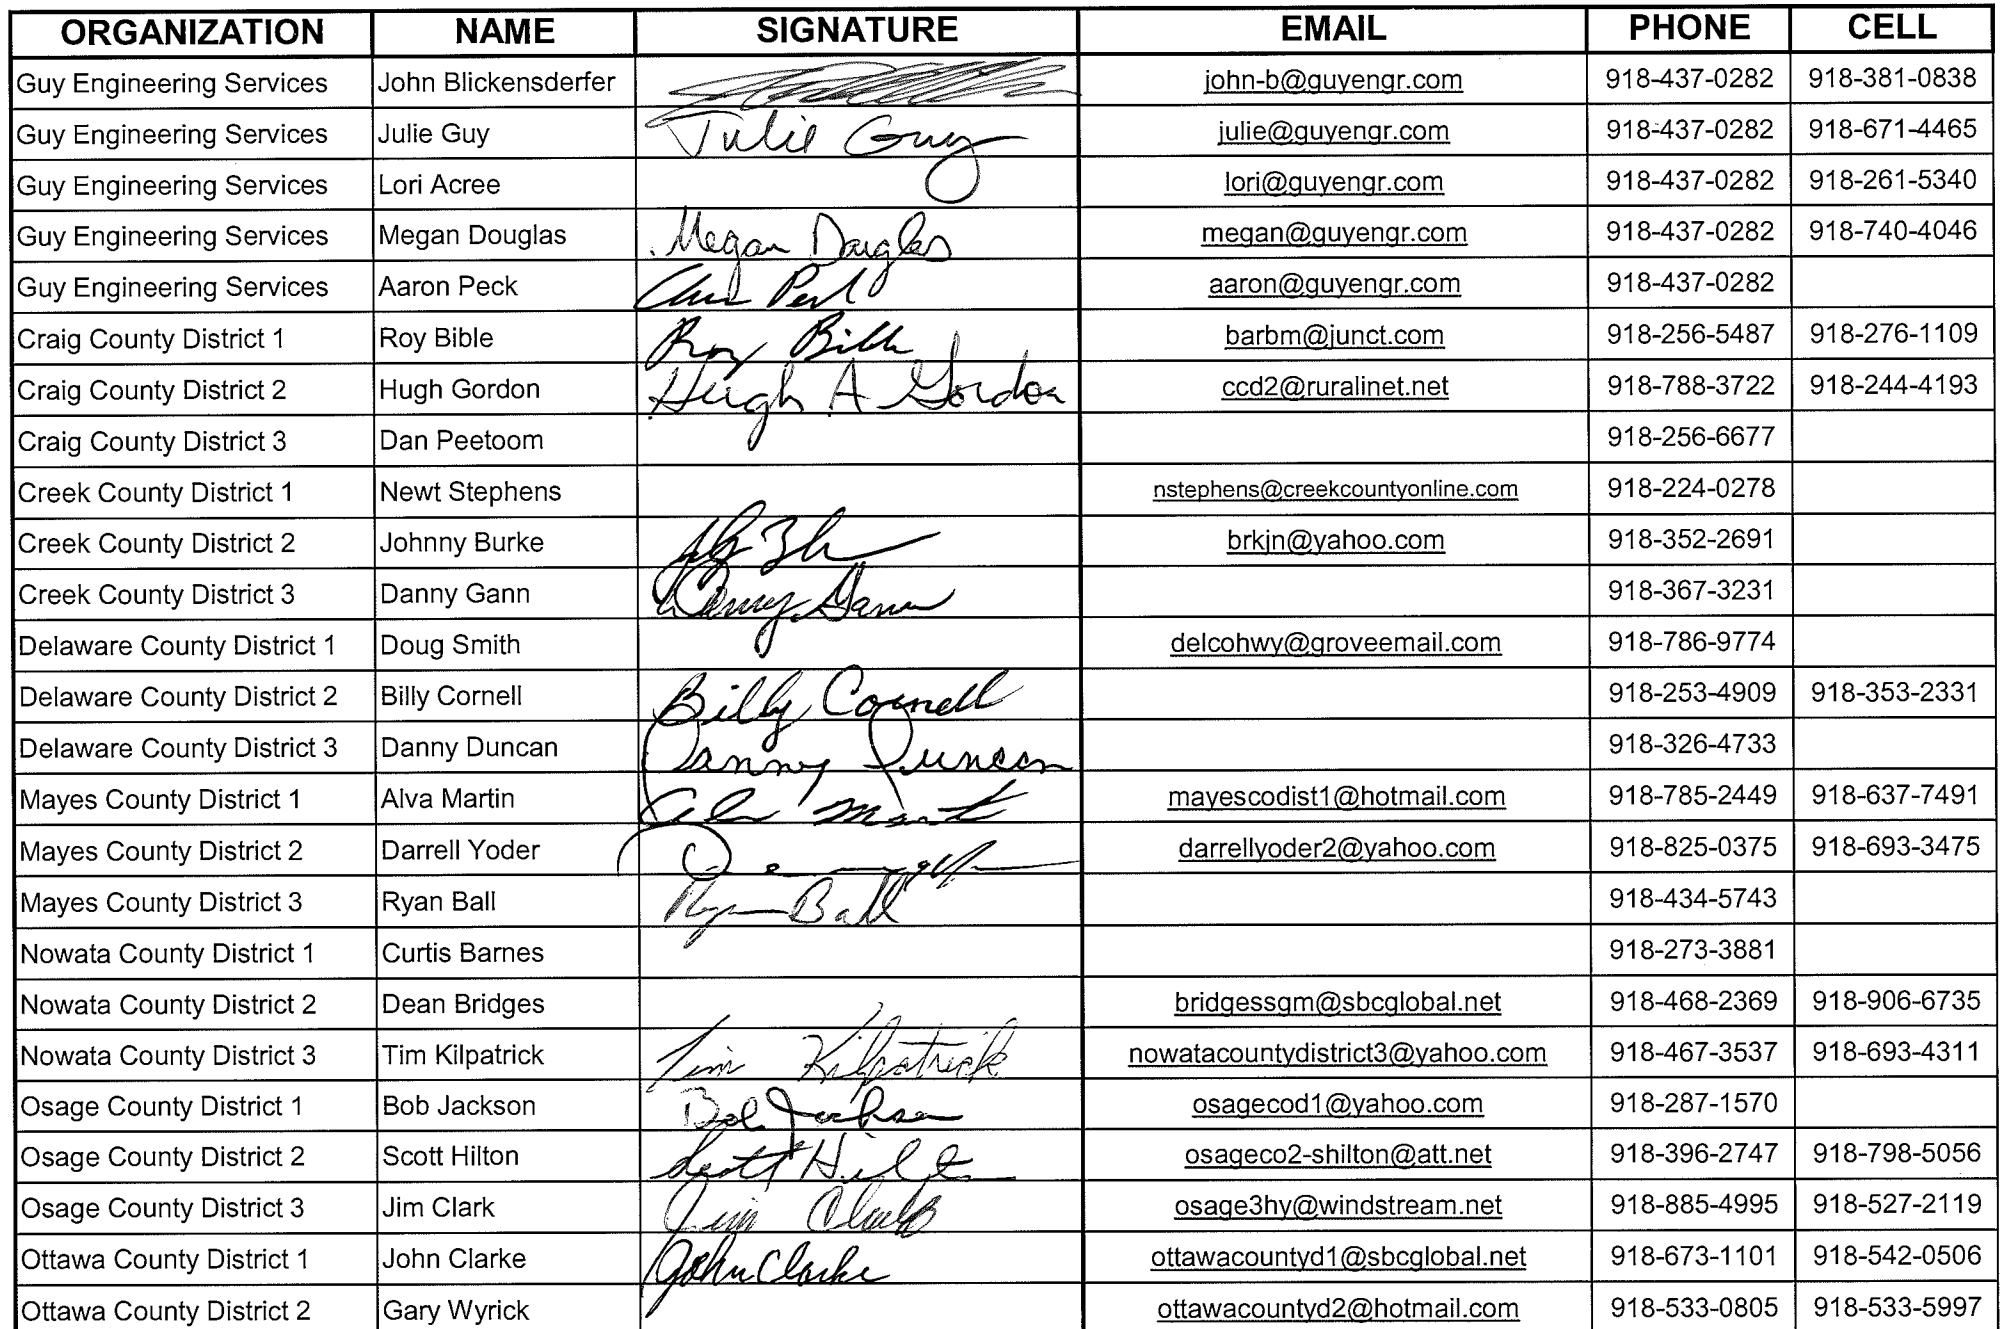 ORGANIZATION NAME SIGNATURE EMAIL PHONE CELL
Guy Engineering Services John Blickensderfer john-b@guyengr.com 918-437-0282 918-381-0838
Guy Engineering Services Julie Guy Julie Guy julie@guyengr.com 918-437-0282 918-671-4465
Guy Engineering Services Lori Acree lori@guyengr.com 918-437-0282 918-261-5340
Guy Engineering Services Megan Douglas Megan Douglas megan@guyengr.com 918-437-0282 918-740-4046
Guy Engineering Services Aaron Peck aaron@guyengr.com 918-437-0282
Craig County District 1 Roy Bible Roy Bible barbm@junct.com 918-256-5487 918-276-1109
Craig County District 2 Hugh Gordon Hugh A Gordon ccd2@ruralinet.net 918-788-3722 918-244-4193
Craig County District 3 Dan Peetoom 918-256-6677
Creek County District 1 Newt Stephens nstephens@creekcountyonline.com 918-224-0278
Creek County District 2 Johnny Burke brkjn@yahoo.com 918-352-2691
Creek County District 3 Danny Gann Danny Gann 918-367-3231
Delaware County District 1 Doug Smith delcohwy@groveemail.com 918-786-9774
Delaware County District 2 Billy Cornell Billy Cornell 918-253-4909 918-353-2331
Delaware County District 3 Danny Duncan Danny Duncan 918-326-4733
Mayes County District 1 Alva Martin mayescodist1@hotmail.com 918-785-2449 918-637-7491
Mayes County District 2 Darrell Yoder darrellyoder2@yahoo.com 918-825-0375 918-693-3475
Mayes County District 3 Ryan Ball Ryan Ball 918-434-5743
Nowata County District 1 Curtis Barnes 918-273-3881
Nowata County District 2 Dean Bridges bridgessgm@sbcglobal.net 918-468-2369 918-906-6735
Nowata County District 3 Tim Kilpatrick Tim Kilpatrick nowatacountydistrict3@yahoo.com 918-467-3537 918-693-4311
Osage County District 1 Bob Jackson Bob Jackson osagecod1@yahoo.com 918-287-1570
Osage County District 2 Scott Hilton Scott Hilton osageco2-shilton@att.net 918-396-2747 918-798-5056
Osage County District 3 Jim Clark Jim Clark osage3hy@windstream.net 918-885-4995 918-527-2119
Ottawa County District 1 John Clarke John Clarke ottawacountyd1@sbcglobal.net 918-673-1101 918-542-0506
Ottawa County District 2 Gary Wyrick ottawacountyd2@hotmail.com 918-533-0805 918-533-5997